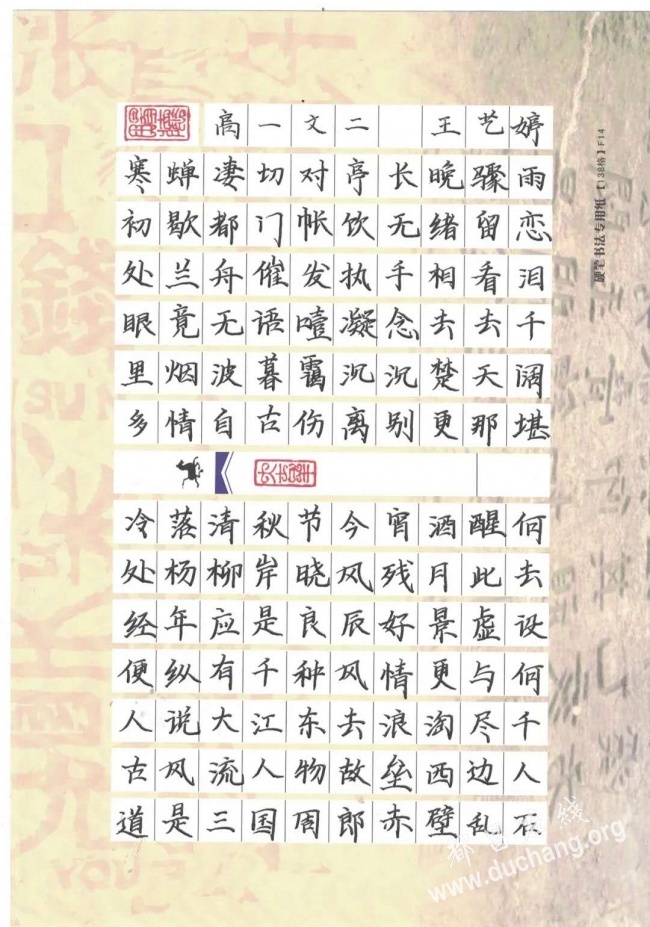 高一文二 王艺婷
寒蝉凄切对亭长晚骤雨
初歇都门帐饮无绪留恋
处兰舟催发执手相看泪
眼竟无语噎凝念去去千
里烟波暮霭沉沉楚天阔
多情自古伤离别更那堪
冷落清秋节今宵酒醒何
处杨柳岸晓风残月此去
经年应是良辰好景虚设
便纵有千种风情更与何
人说大江东去浪淘尽千
古风流人物故垒西边人
道是三国周郎赤壁乱石
硬笔书法专用纸【138格】F14
都昌在线
www.duchang.org